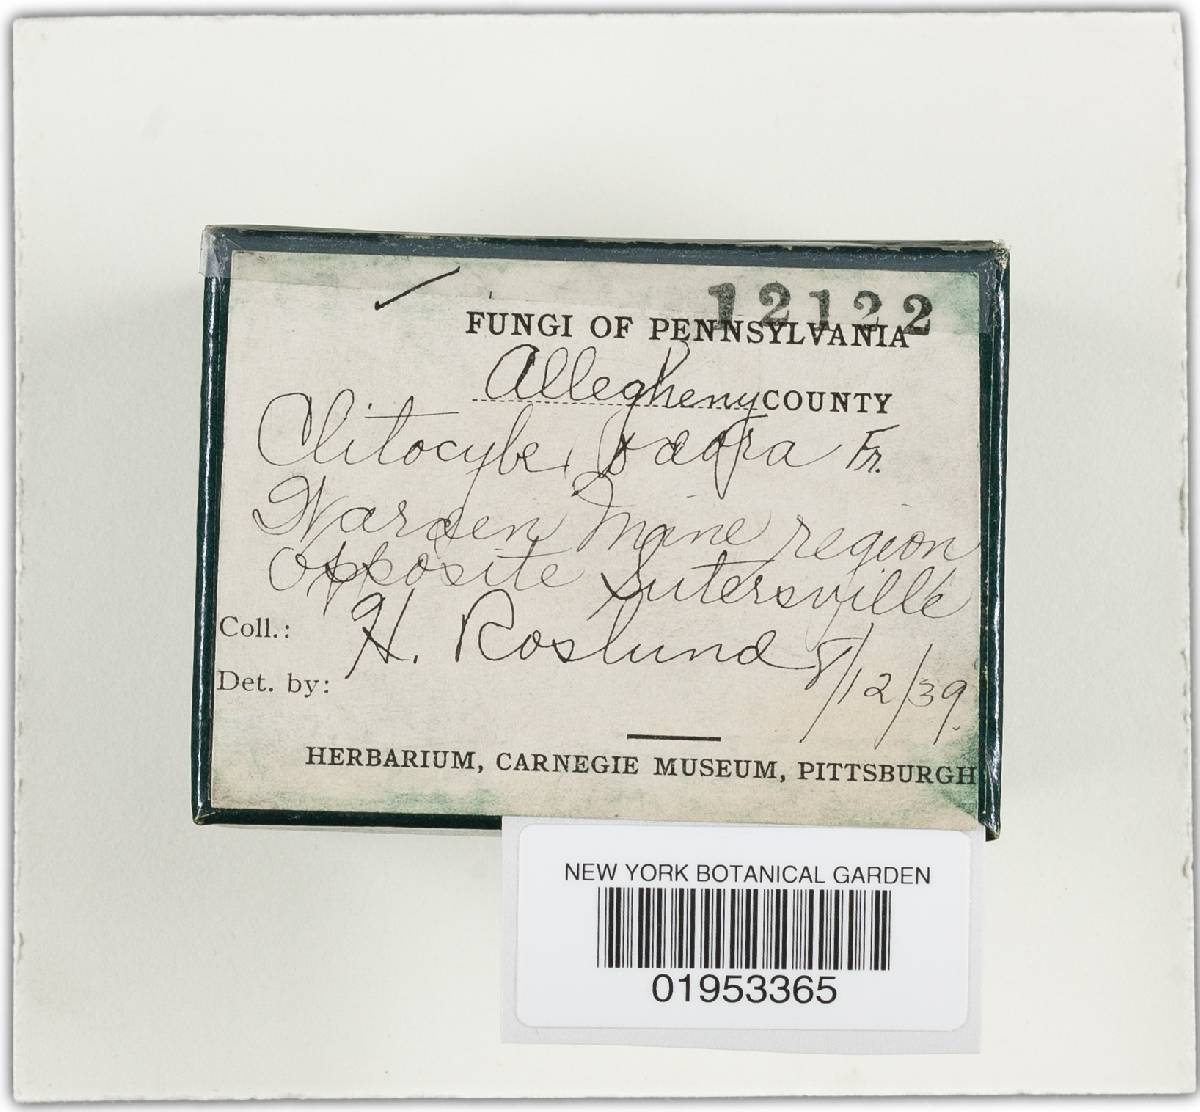 12122
FUNGI OF PENNSYLVANIA
Allegheny COUNTY
Clitocybe odora Fr.
Warden Mine region
opposite Sutersville
Coll.: H. Roslund 8/12/39.
Det. by:
HERBARIUM, CARNEGIE MUSEUM, PITTSBURGH
NEW YORK BOTANICAL GARDEN
01953365